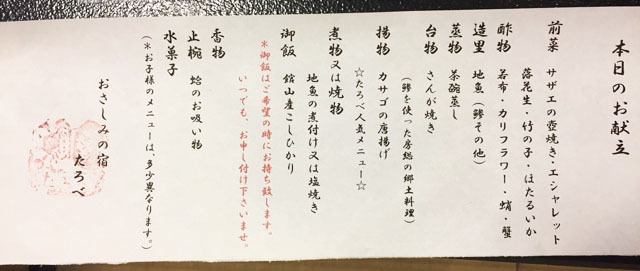 本日のお献立
前菜　サザエの壺焼き・エシャレット
落花生・竹の子・ほたるいか
酢物　若布・カリフラワー・蛸・蟹
造里　地魚（鯵その他）
蒸物　茶碗蒸し
台物　さんが焼き
（鯵を使った房総の郷土料理）
揚物　カサゴの唐揚げ
☆たろべ人気メニュー☆
煮物又は焼物
地魚の煮付け又は塩焼き
御飯　館山産こしひかり
＊御飯はご希望の時にお持ち致します。
いつでも、お申し付け下さいませ。
香物
止椀　蛤のお吸い物
水菓子
（＊お子様のメニューは、多少異なります。）
おさしみの宿
たろべ